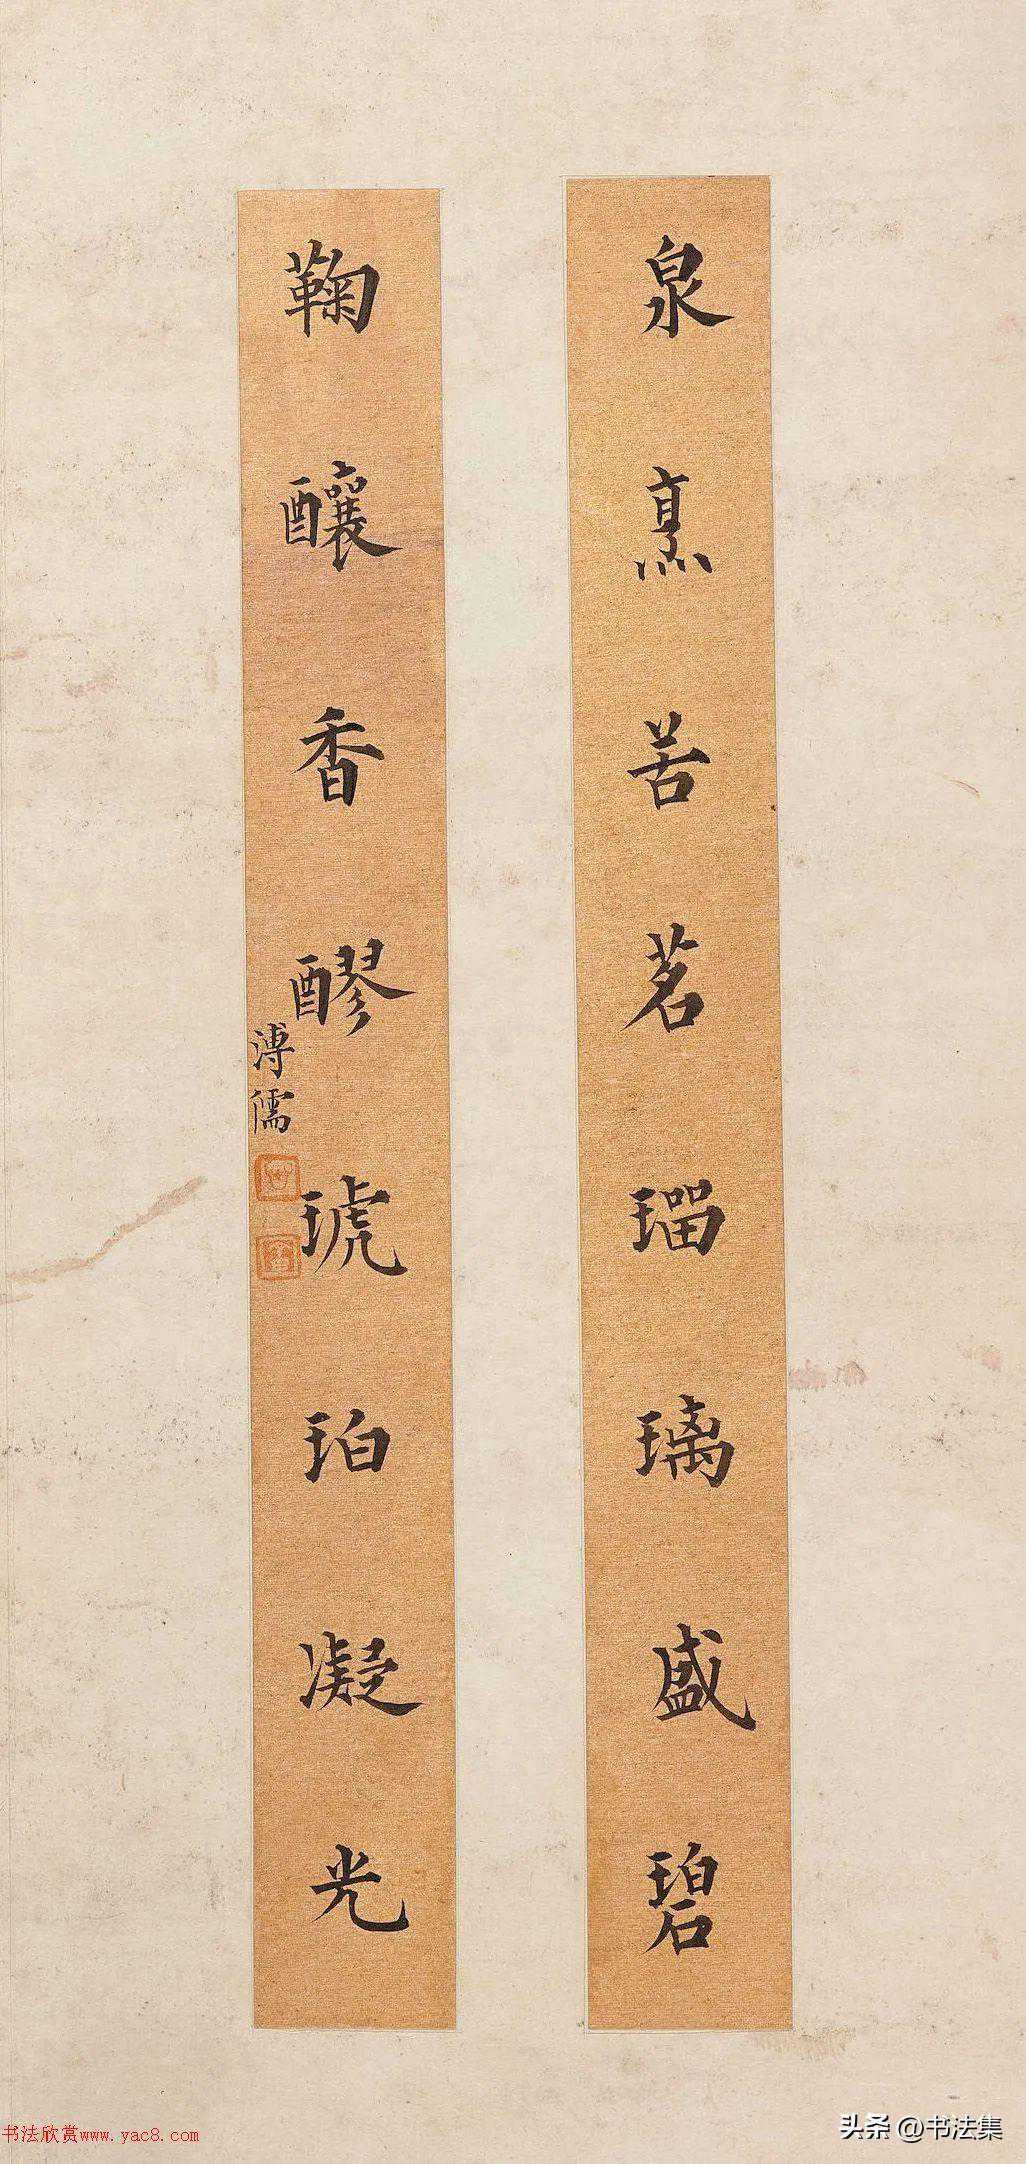 泉烹苦茗瑠璃盛碧
鞠釀香醪琥珀凝光
溥儒
书法欣赏www.yac8.com
头条 @书法集